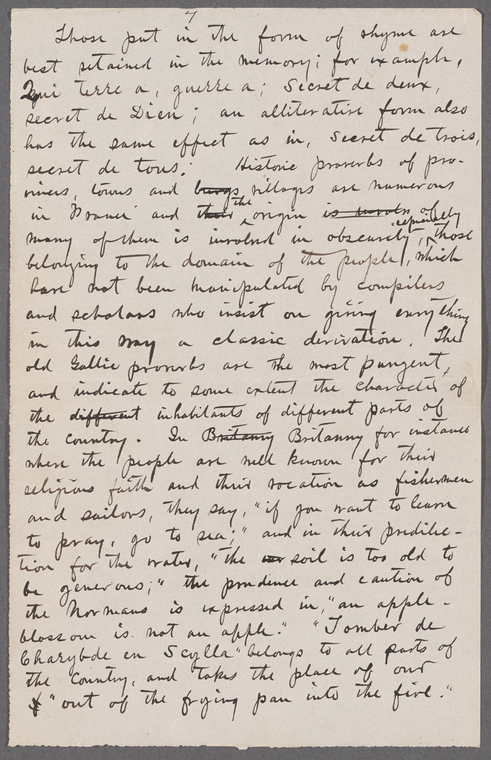 7
Those put in the form of rhyme are
best retained in the memory; for example,
Qui terre a, guerre a; Secret de deux,
secret de Dieu; an alliterative form also
has the same effect as in, Secret de trois,
secret de tous. Historic proverbs of pro-
vinces, towns and burgs, villages are numerous
in France and their the origin is involv of
many of them is involved in obscurity, especially those
belonging to the domain of the people, which
have not been manipulated by compilers
and scholars who insist on giving everything
in this way a classic derivation. The
old Gallic proverbs are the most pungent,
and indicate to some extent the character of
the different inhabitants of different parts of
the country. In Britanny Britanny for instance
where the people are well known for their
religious faith and their vocation as fishermen
and sailors, they say, "if you want to learn
to pray, go to sea;" and in their predilec-
tion for the water, "the soil is too old to
be generous;" the prudence and caution of
the Normans is expressed in, "an apple-
blossom is not an apple." "Tomber de
Charybde en Scylla" belongs to all parts of
the country, and takes the place of our
"out of the frying pan into the fire."